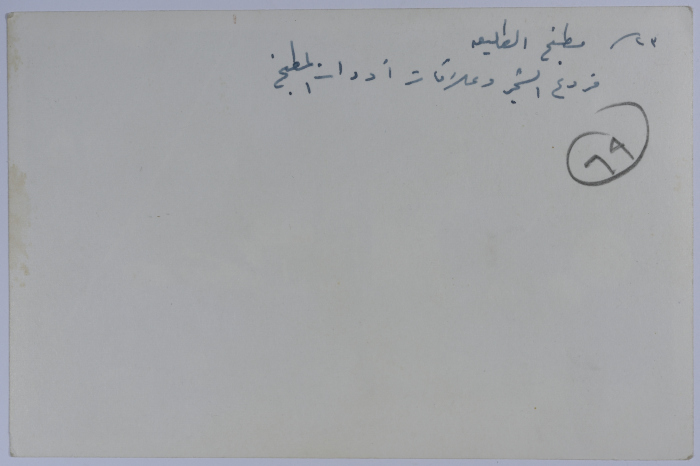 ٢٣ـ مطبخ الطليعه
فروع الشجر وعلاقات أدوات المطبخ
٦٩